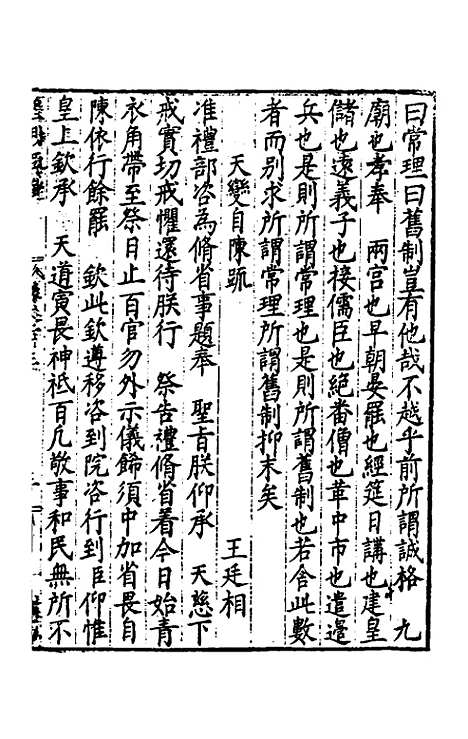 曰常理曰舊制豈有他哉不越乎前所謂誠格　九
廟也孝奉　兩宮也早朝晏罷也經筵日講也建皇
儲也遠義子也接儒臣也絕畨僧也革中市也遣邉
兵也是則所謂常理也是則所謂舊制也若舍此數
者而別求所謂常理所謂舊制抑末矣
天變自陳疏
王廷相
准禮部咨為脩省事題奉　聖旨朕仰承　天慈下
戒實切戒懼還待朕行　祭告禮脩省着今日始青
衣角帶至祭日止百官勿外示儀飾須中加省畏自
陳依行餘罷　欽此欽遵移咨到院咨行到臣仰惟
皇上欽承　天道寅畏神祗百凡敬事和民無所不